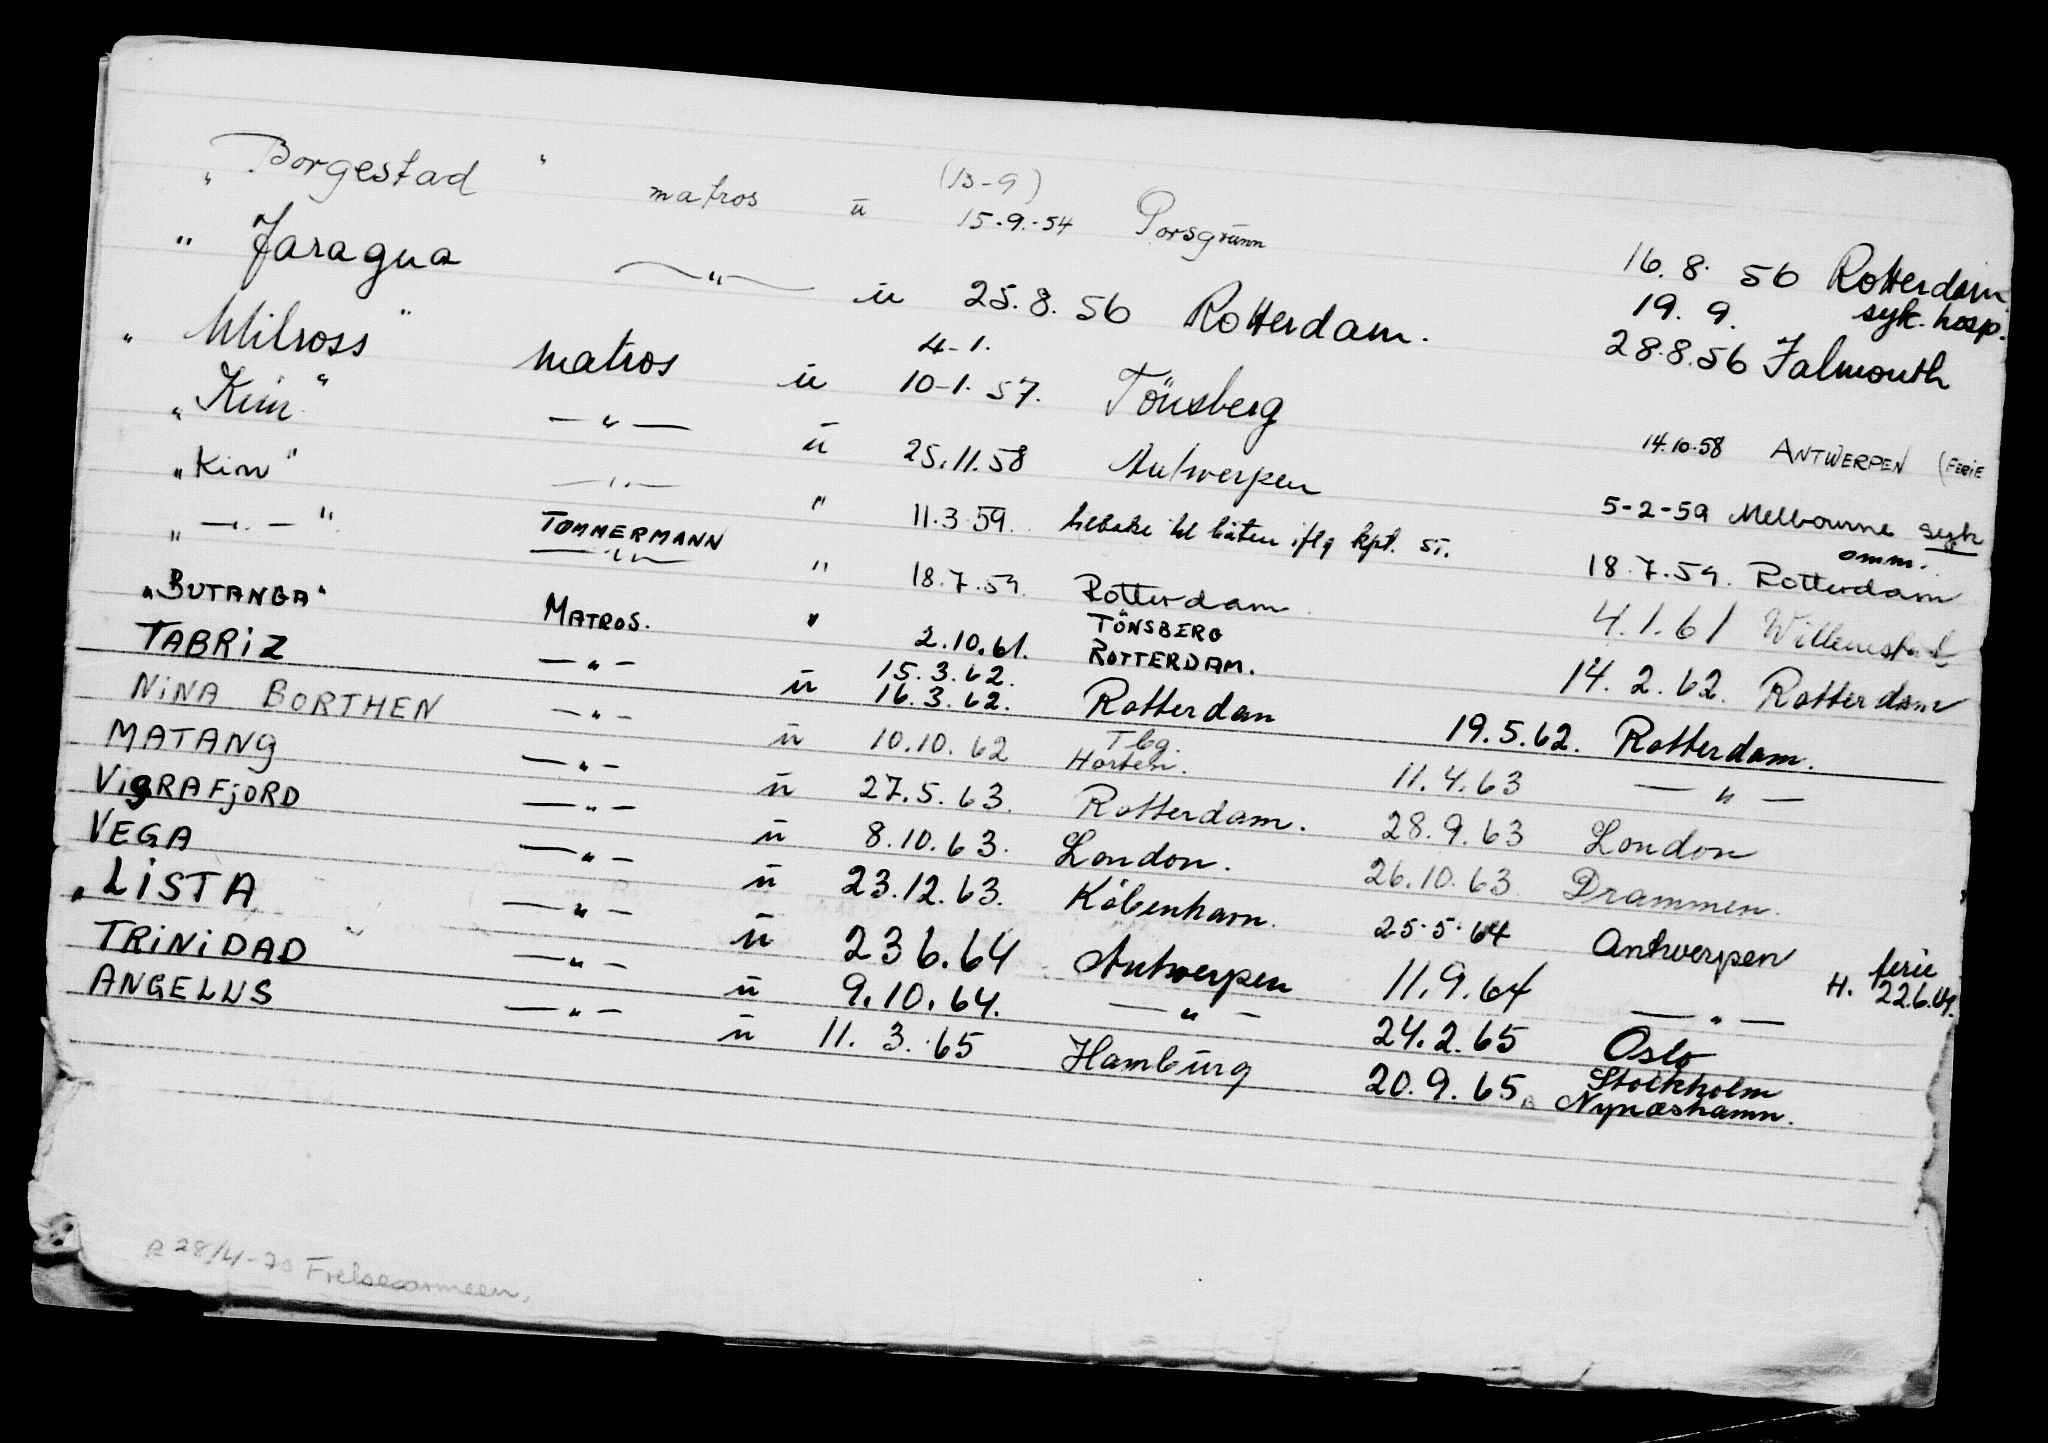 „Borgestad" matros u (13-9) 15.9.-54 Porsgrunn 16.8.56 Rotterdam
„Jaragua —„— u 25.8.56 Rotterdam. 19.9. syk. hosp.
„Milross" matros u 4-1. 10-1.57. Tönsberg 28.8.56 Falmouth
„Kim" —„— u 25.11.58 Antwerpen 14.10.58 ANTWERPEN (FERIE
„Kim" —„— " 11.3.59. tilbake til båten iflg kpt. 5-2-59 Melbourne syk
omm.
„—„—" TØMMERMANN —„— " 18.7.59. Rotterdam 18.7.59. Rotterdam
„BUTANGA" MATROS. " 2.10.61. TÖNSBERG 4.1.61 Willemstad
TABRIZ —„— u 15.3.62. 16.3.62. ROTTERDAM. Rotterdam 14.2.62. Rotterdam
NINA BORTHEN —„— u 10.10.62 Tbg. Horten. 19.5.62. Rotterdam.
MATANG —„— u 27.5.63. Rotterdam. 11.4.63 —„—
VIGRAFJORD —„— u 8.10.63. London. 28.9.63 London
VEGA —„— u 23.12.63. København. 26.10.63 Drammen.
„LISTA —„— u 23 6.64 Antwerpen 25.5.64 Antwerpen ferie H. 22.6.64.
TRINIDAD —„— u 9.10.64. —„— 11.9.64 —„—
ANGELUS —„— u 11.3.65 Hamburg 24.2.65 Oslo
20.9.65 Stockholm
Nynæshamn.
R 28/4-70 Frelsesarmeen.